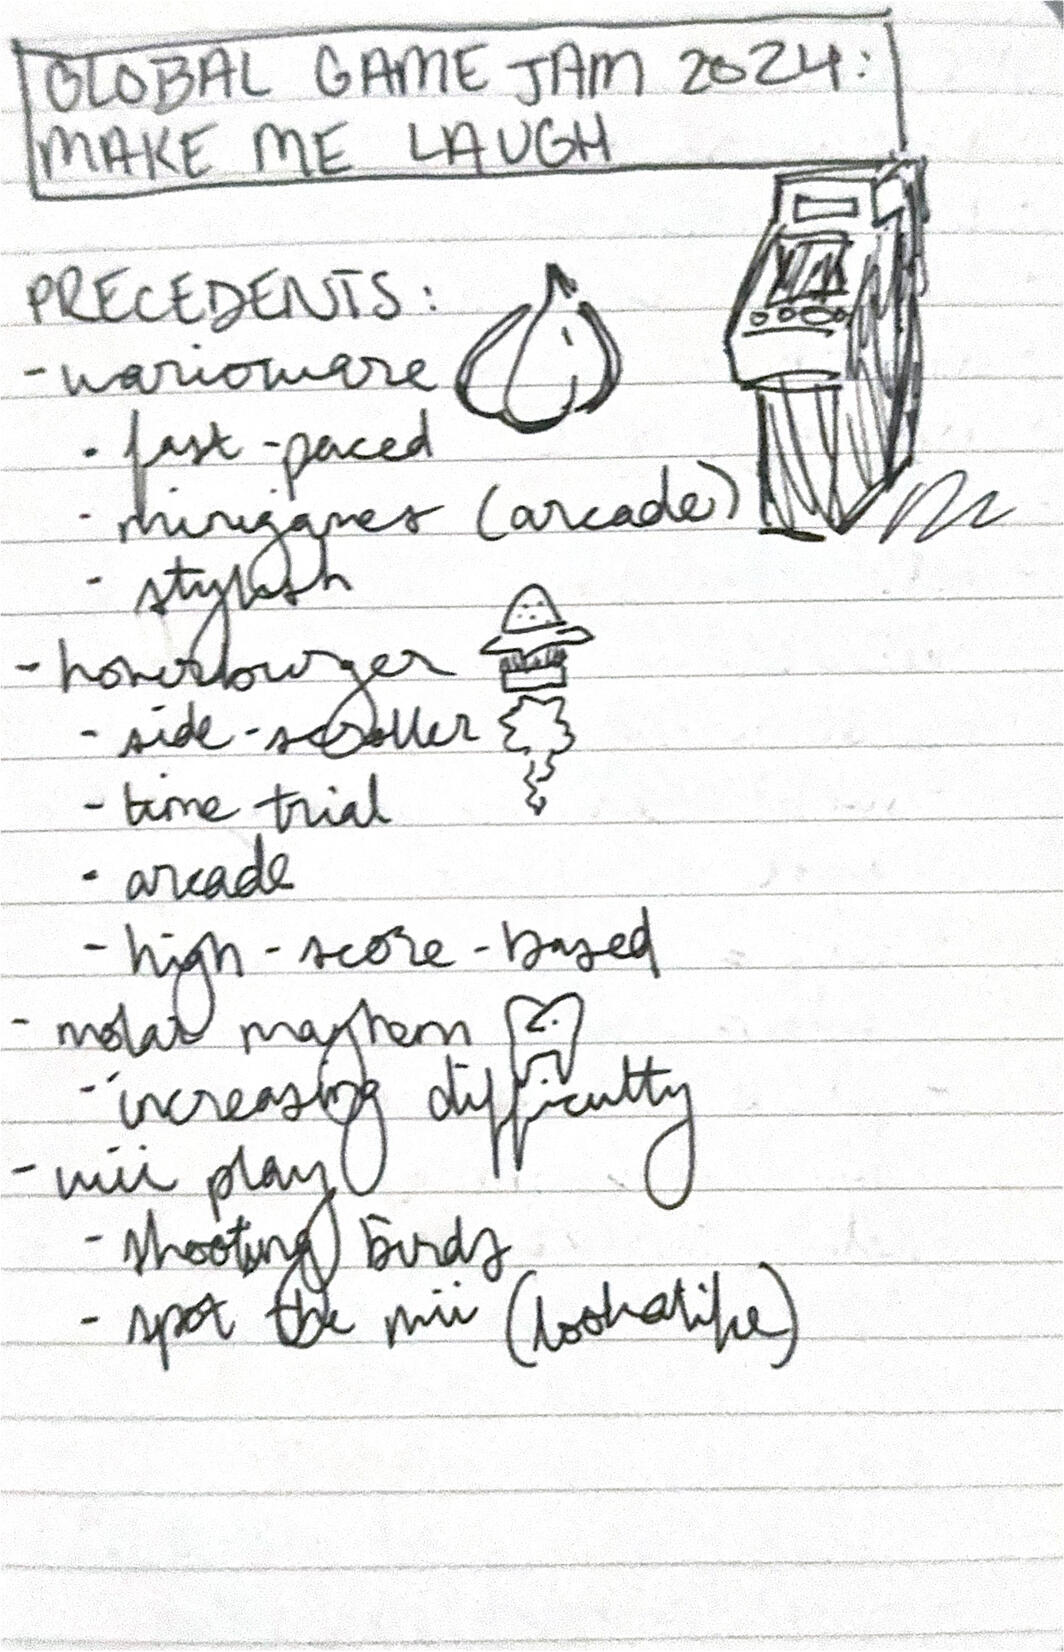 GLOBAL GAME JAM 2024:
MAKE ME LAUGH
PRECEDENTS:
- warioware
· fast-paced
· minigames (arcade)
- stylish
- hoverburger
- side-scroller
- time trial
- arcade
- high-score-based
- molar mayhem
- increasing difficulty
- wii play
- shooting birds
- spot the mii (lookalike)